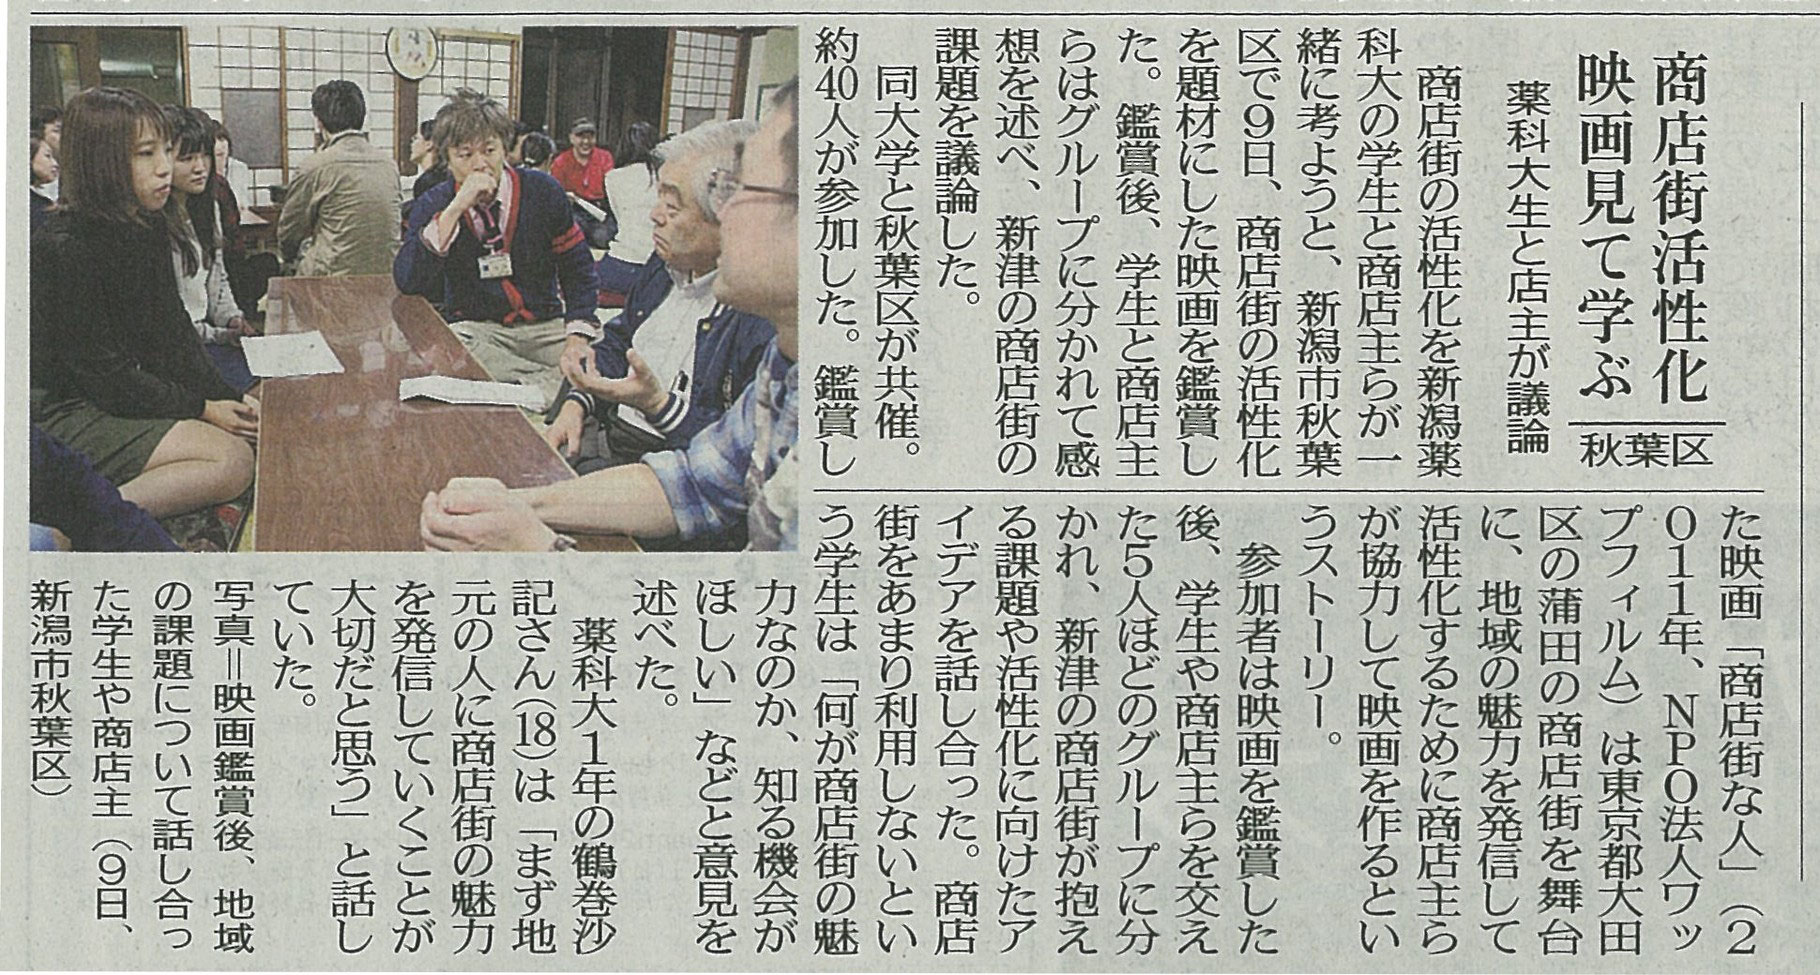 商店街活性化
映画見て学ぶ
秋葉区
薬科大生と店主が議論
商店街の活性化を新潟薬
科大の学生と商店主らが一
緒に考ようと、新潟市秋葉
区で9日、商店街の活性化
を題材にした映画を鑑賞し
た。鑑賞後、学生と商店主
らはグループに分かれて感
想を述べ、新津の商店街の
課題を議論した。
同大学と秋葉区が共催。
約40人が参加した。鑑賞し
た映画「商店街な人」(2
011年、NPO法人ワッ
プフィルム)は東京都大田
区の蒲田の商店街を舞台
に、地域の魅力を発信して
活性化するために商店主ら
が協力して映画を作るとい
うストーリー。
参加者は映画を鑑賞した
後、学生や商店主らを交え
た5人ほどのグループに分
かれ、新津の商店街が抱え
る課題や活性化に向けたア
イデアを話し合った。商店
街をあまり利用しないとい
う学生は「何が商店街の魅
力なのか、知る機会が
ほしい」などと意見を
述べた。
薬科大1年の鶴巻沙
記さん(18)は「まず地
元の人に商店街の魅力
を発信していくことが
大切だと思う」と話し
ていた。
写真=映画鑑賞後、地域
の課題について話し合っ
た学生や商店主(9日、
新潟市秋葉区)